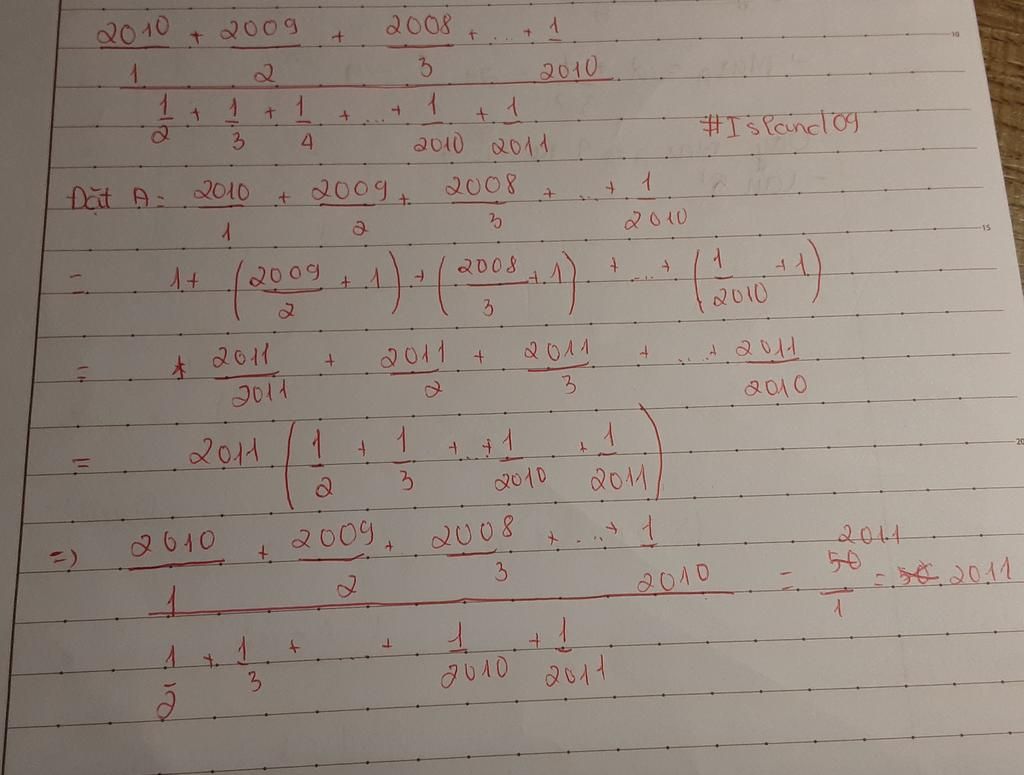 2010/1 + 2009/2 + 2008/3 + ... + 1/2010
1/2 + 1/3 + 1/4 + ... + 1/2010 + 1/2011
#Island09
Đặt A = 2010/1 + 2009/2 + 2008/3 + ... + 1/2010
= 1 + (2009/2 + 1) + (2008/3 + 1) + ... + (1/2010 + 1)
= 2011/2011 + 2011/2 + 2011/3 + ... + 2011/2010
= 2011 (1/2 + 1/3 + ... + 1/2010 + 1/2011)
=) 2010/1 + 2009/2 + 2008/3 + ... + 1/2010
1/2 + 1/3 + ... + 1/2010 + 1/2011
= 2011/1 = 2011
10
15
20